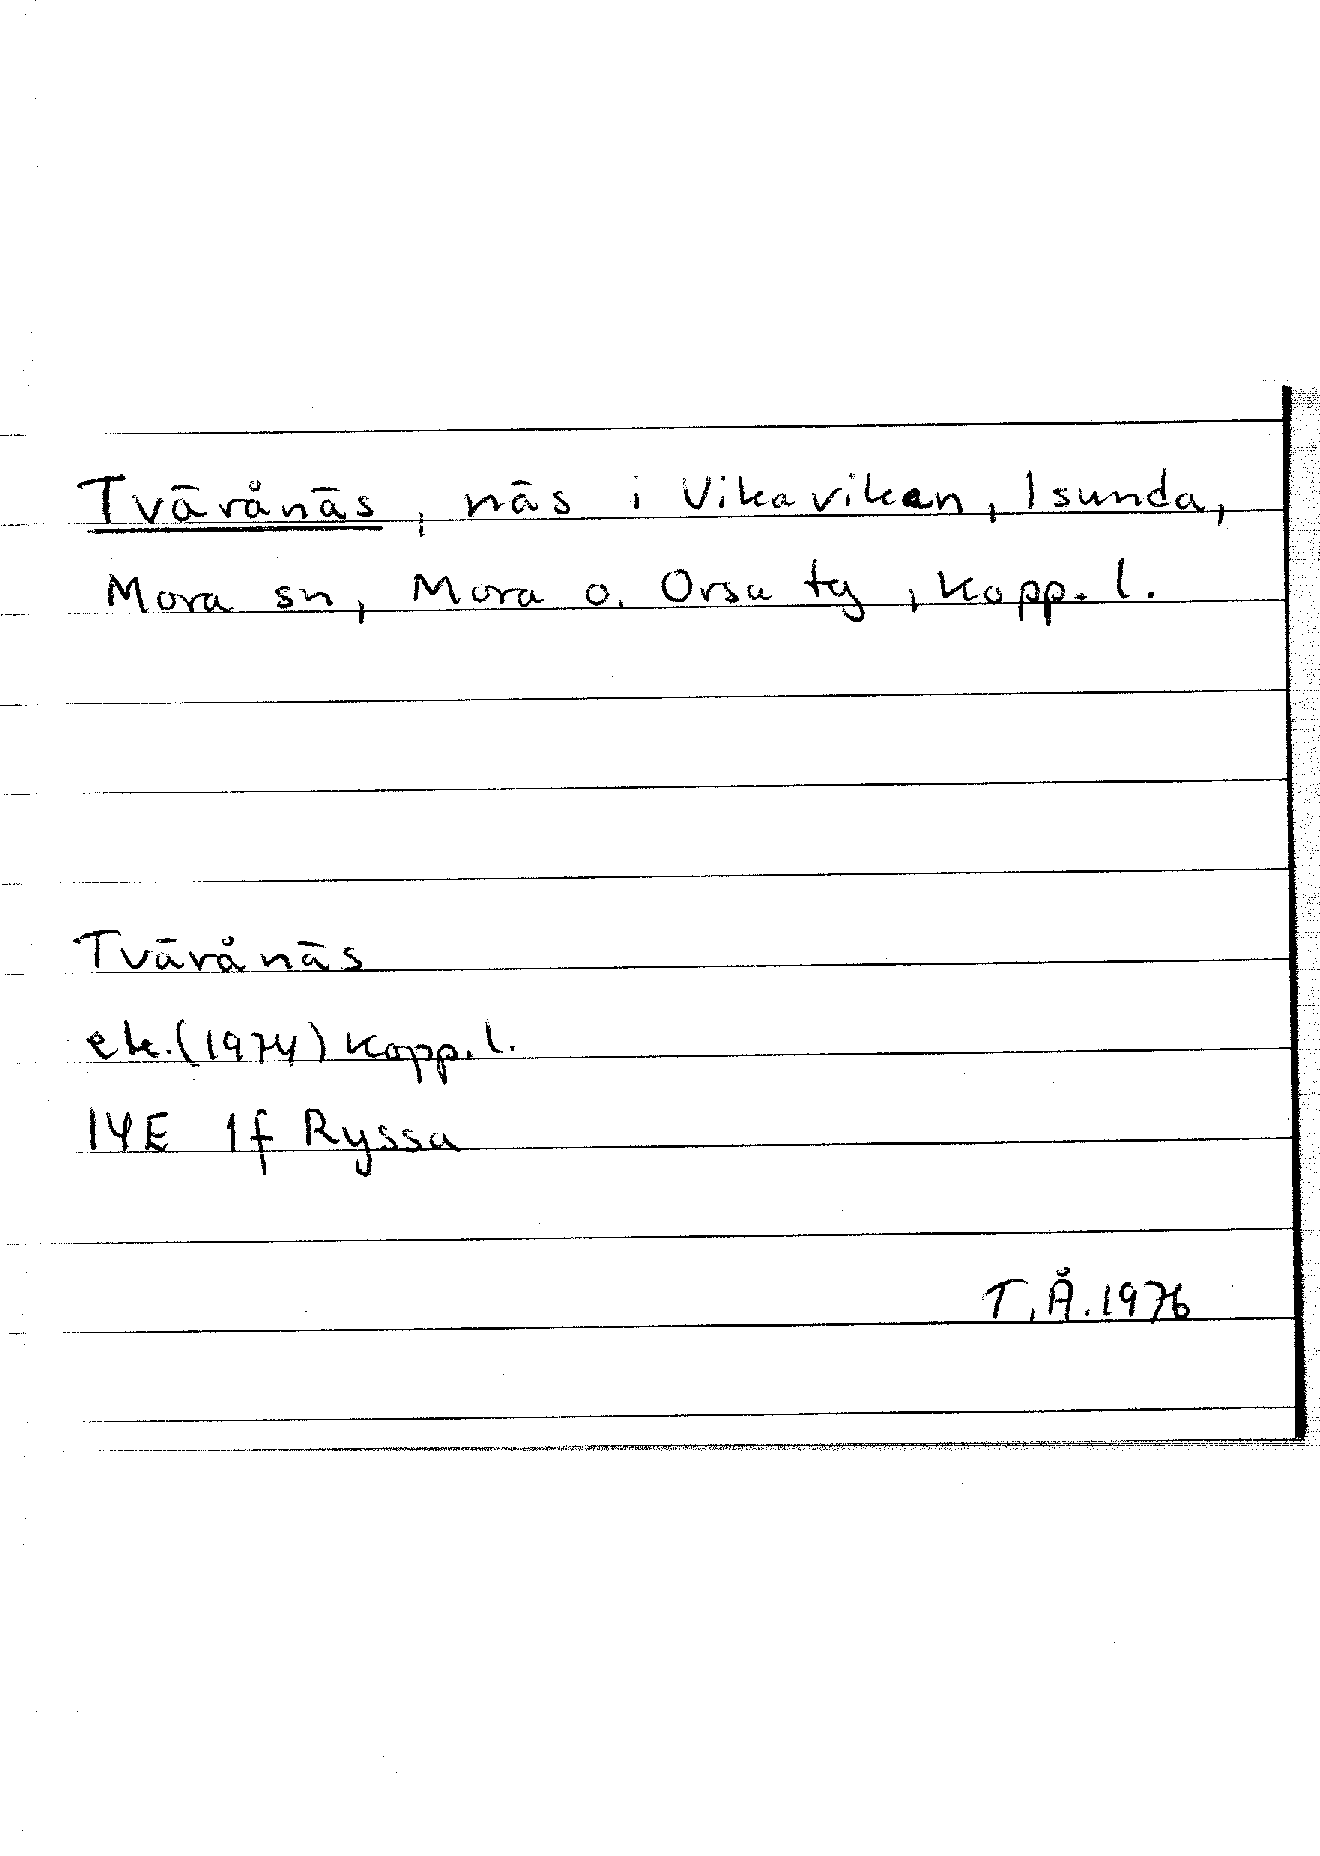 Tvärånäs, näs i Vikaviken, Isunda,
Mora sn, Mora o. Orsa tg, Kopp. l.
Tvärånäs
ek. (1974) Kopp. l.
14E 1f Ryssa
T.Å. 1976